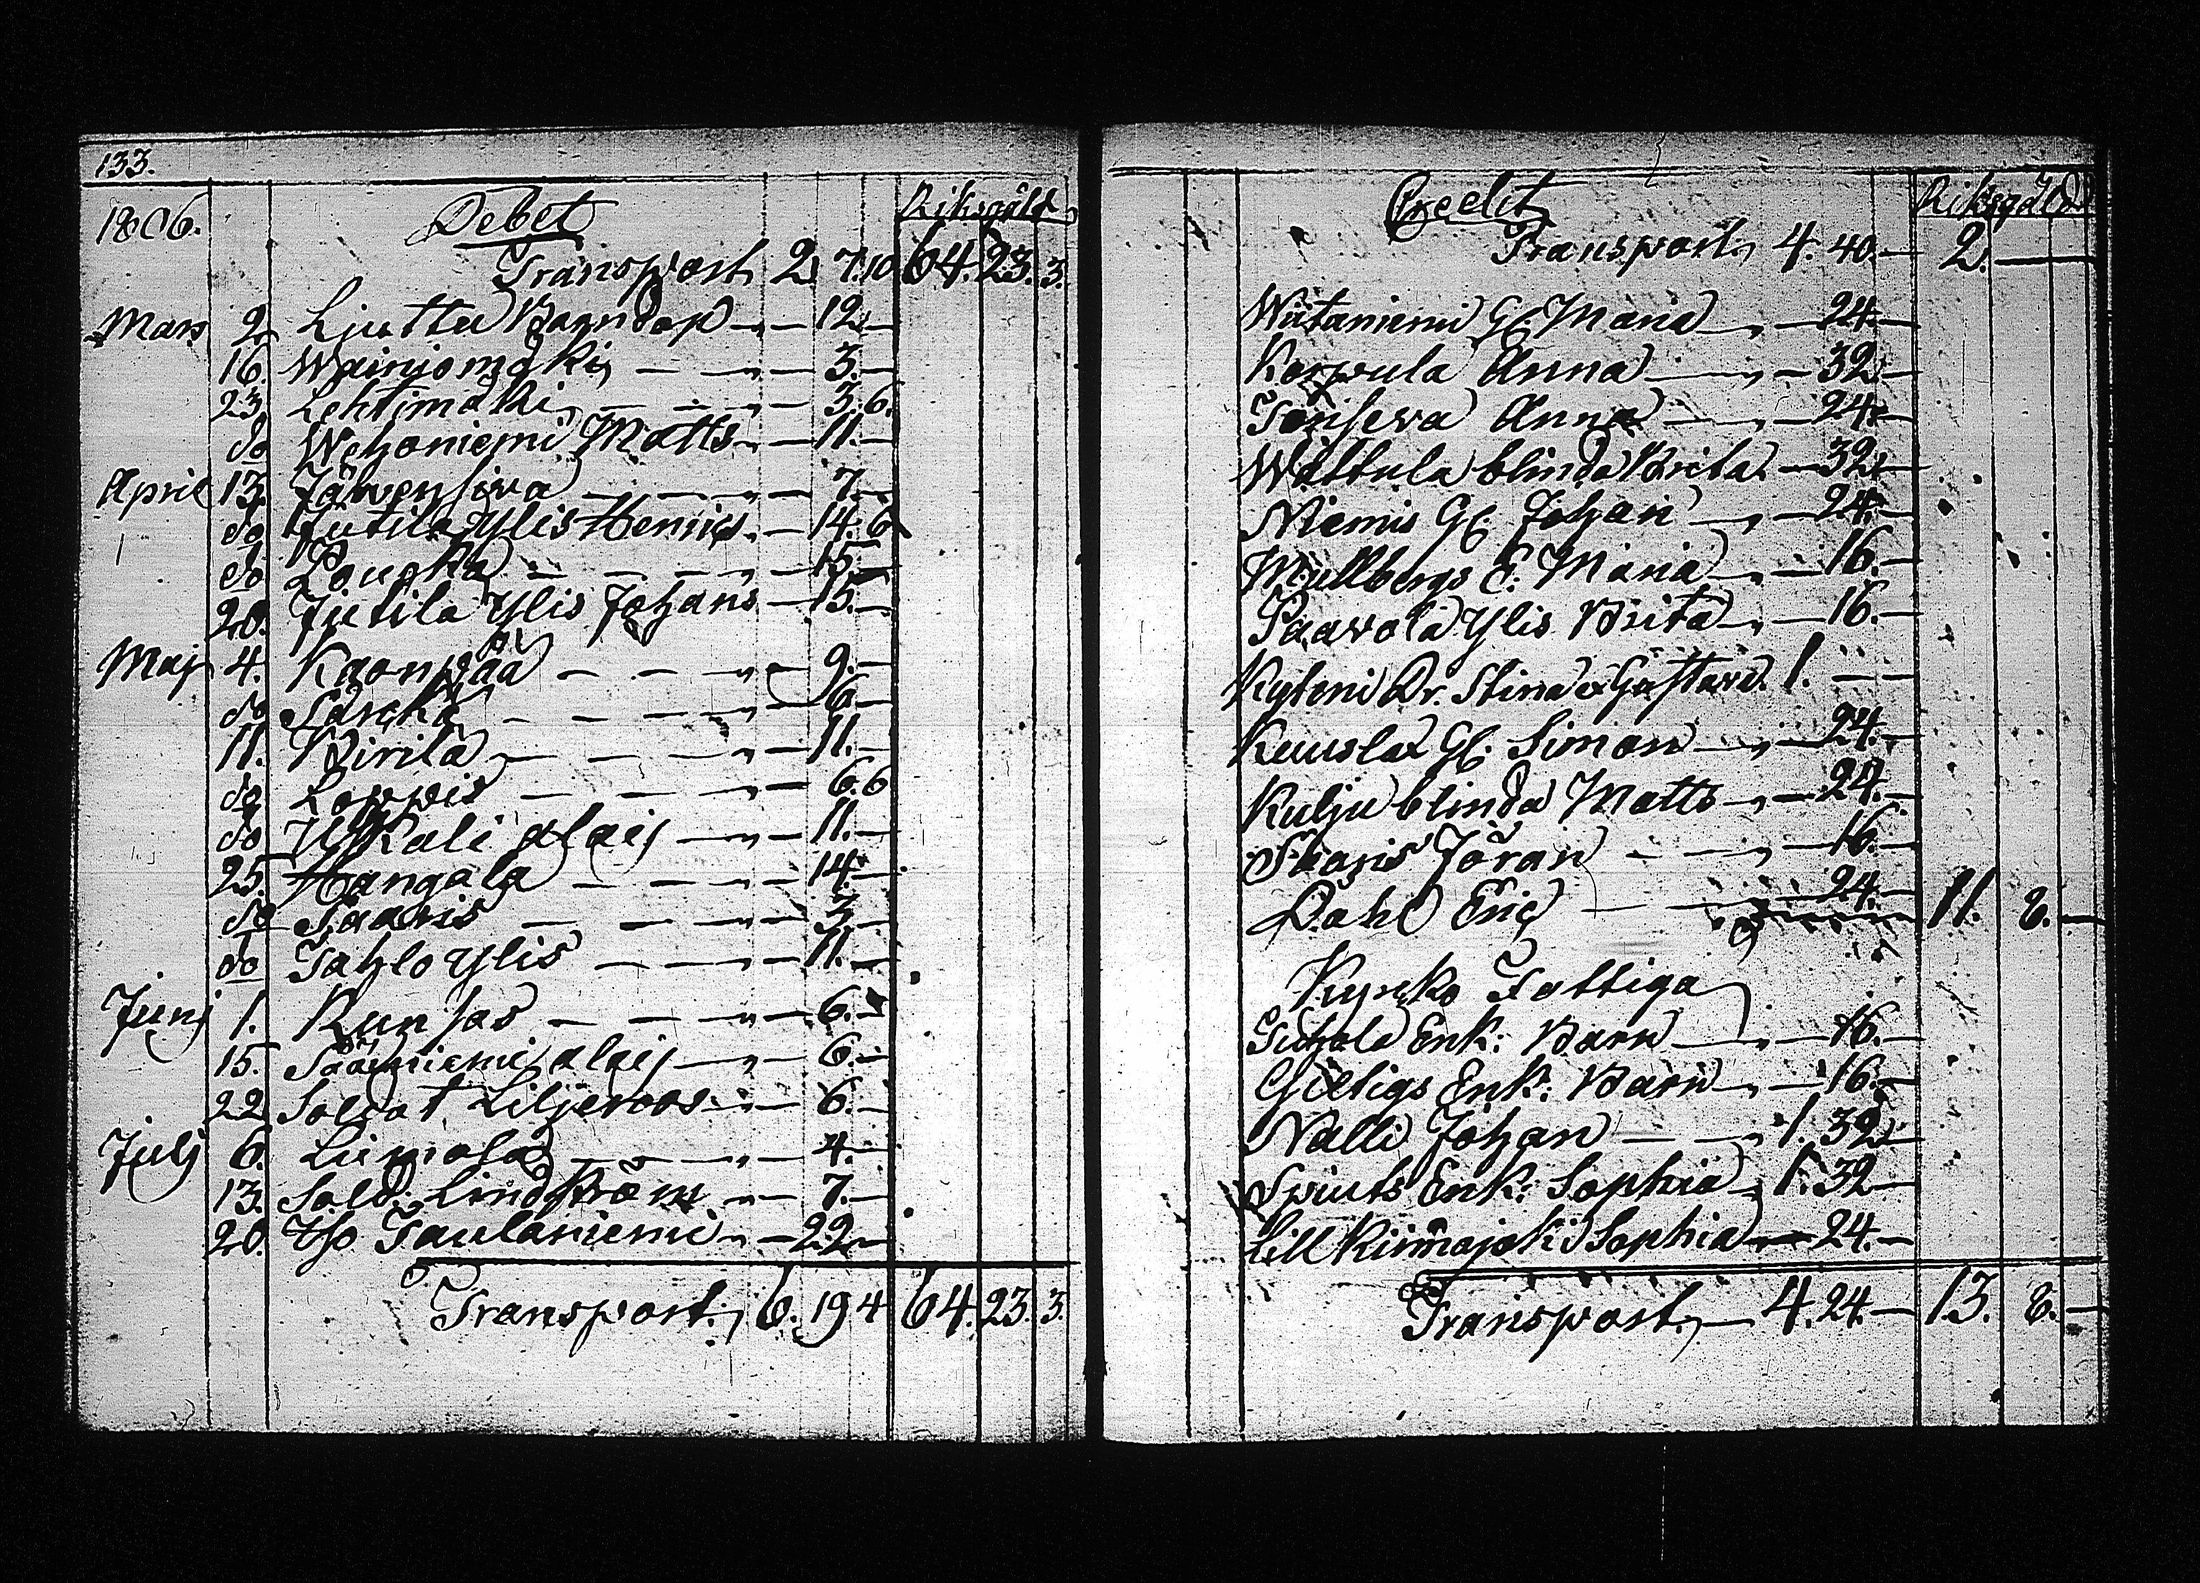 133.
1806. Debet Riksgäld
Transport 2. 7. 10 64. 23. 3.
Mars 2. Ljuttu Barndop 12
16. Wainiomäki 3.
23. Lehtimäki 3. 6.
do Wehoniemi Matts 11.
April 13. Jäwensiva 7.
do Jutila Ylis Henrics 14. 6
do Poucka 15
20. Jutila Ylis Johans 15.
Maj 4. Kaonpää 9.
do Särckä 6
11. Kirila 11.
do Loppis 6. 6
do Uskali alaij 11.
25. Hangala 14.
do Saaris 3
do Tahlo Ylis 11.
Junj 1. Runsas 6.
15. Saariniemi alaij 6.
22 Soldat Liljeroos 6.
Julj 6. Liimola 4.
13. Sold. Lindström 7.
20. Iso Taulaniemi 22
Transport. 6. 19 4 64. 23. 3.
Credit Riksgäld
Transport 4. 40. 2.
Wiitaniemi Gl. Maria 24.
Korpula Anna 32
Anna 24.
Wättula blinda Brita 32
Niemis Gl. Johan 24.
Mullbergs E. Maria 16.
Paavola Ylis Brita 16.
Kyleni Dr. Stina & Gustava. 1.
Kuusla Gl. Simon 24.
Kulju blinda Matts 24.
Skaris Jöran 16.
Dahl Eric 24. 11. 8.
Kyrko Fattiga
Enk: Barn 16.
Giltigs Enk: Barn 16.
Nalli Johan 1. 32
Spiuts Enk: Sophia 1. 32
Lill Kiimajoki Sophia 24.
Transport. 4. 24. 13. 8.